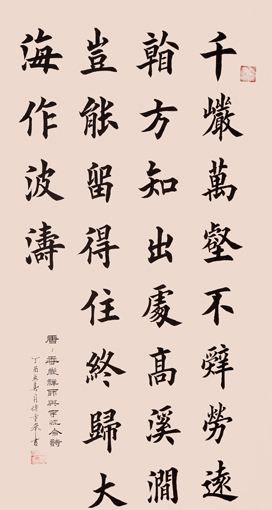 千巗萬壑不辭勞遠
看方知出處高溪澗
豈能留得住終歸大
海作波濤
唐·香嚴禪師與李忱合詩
丁酉
書